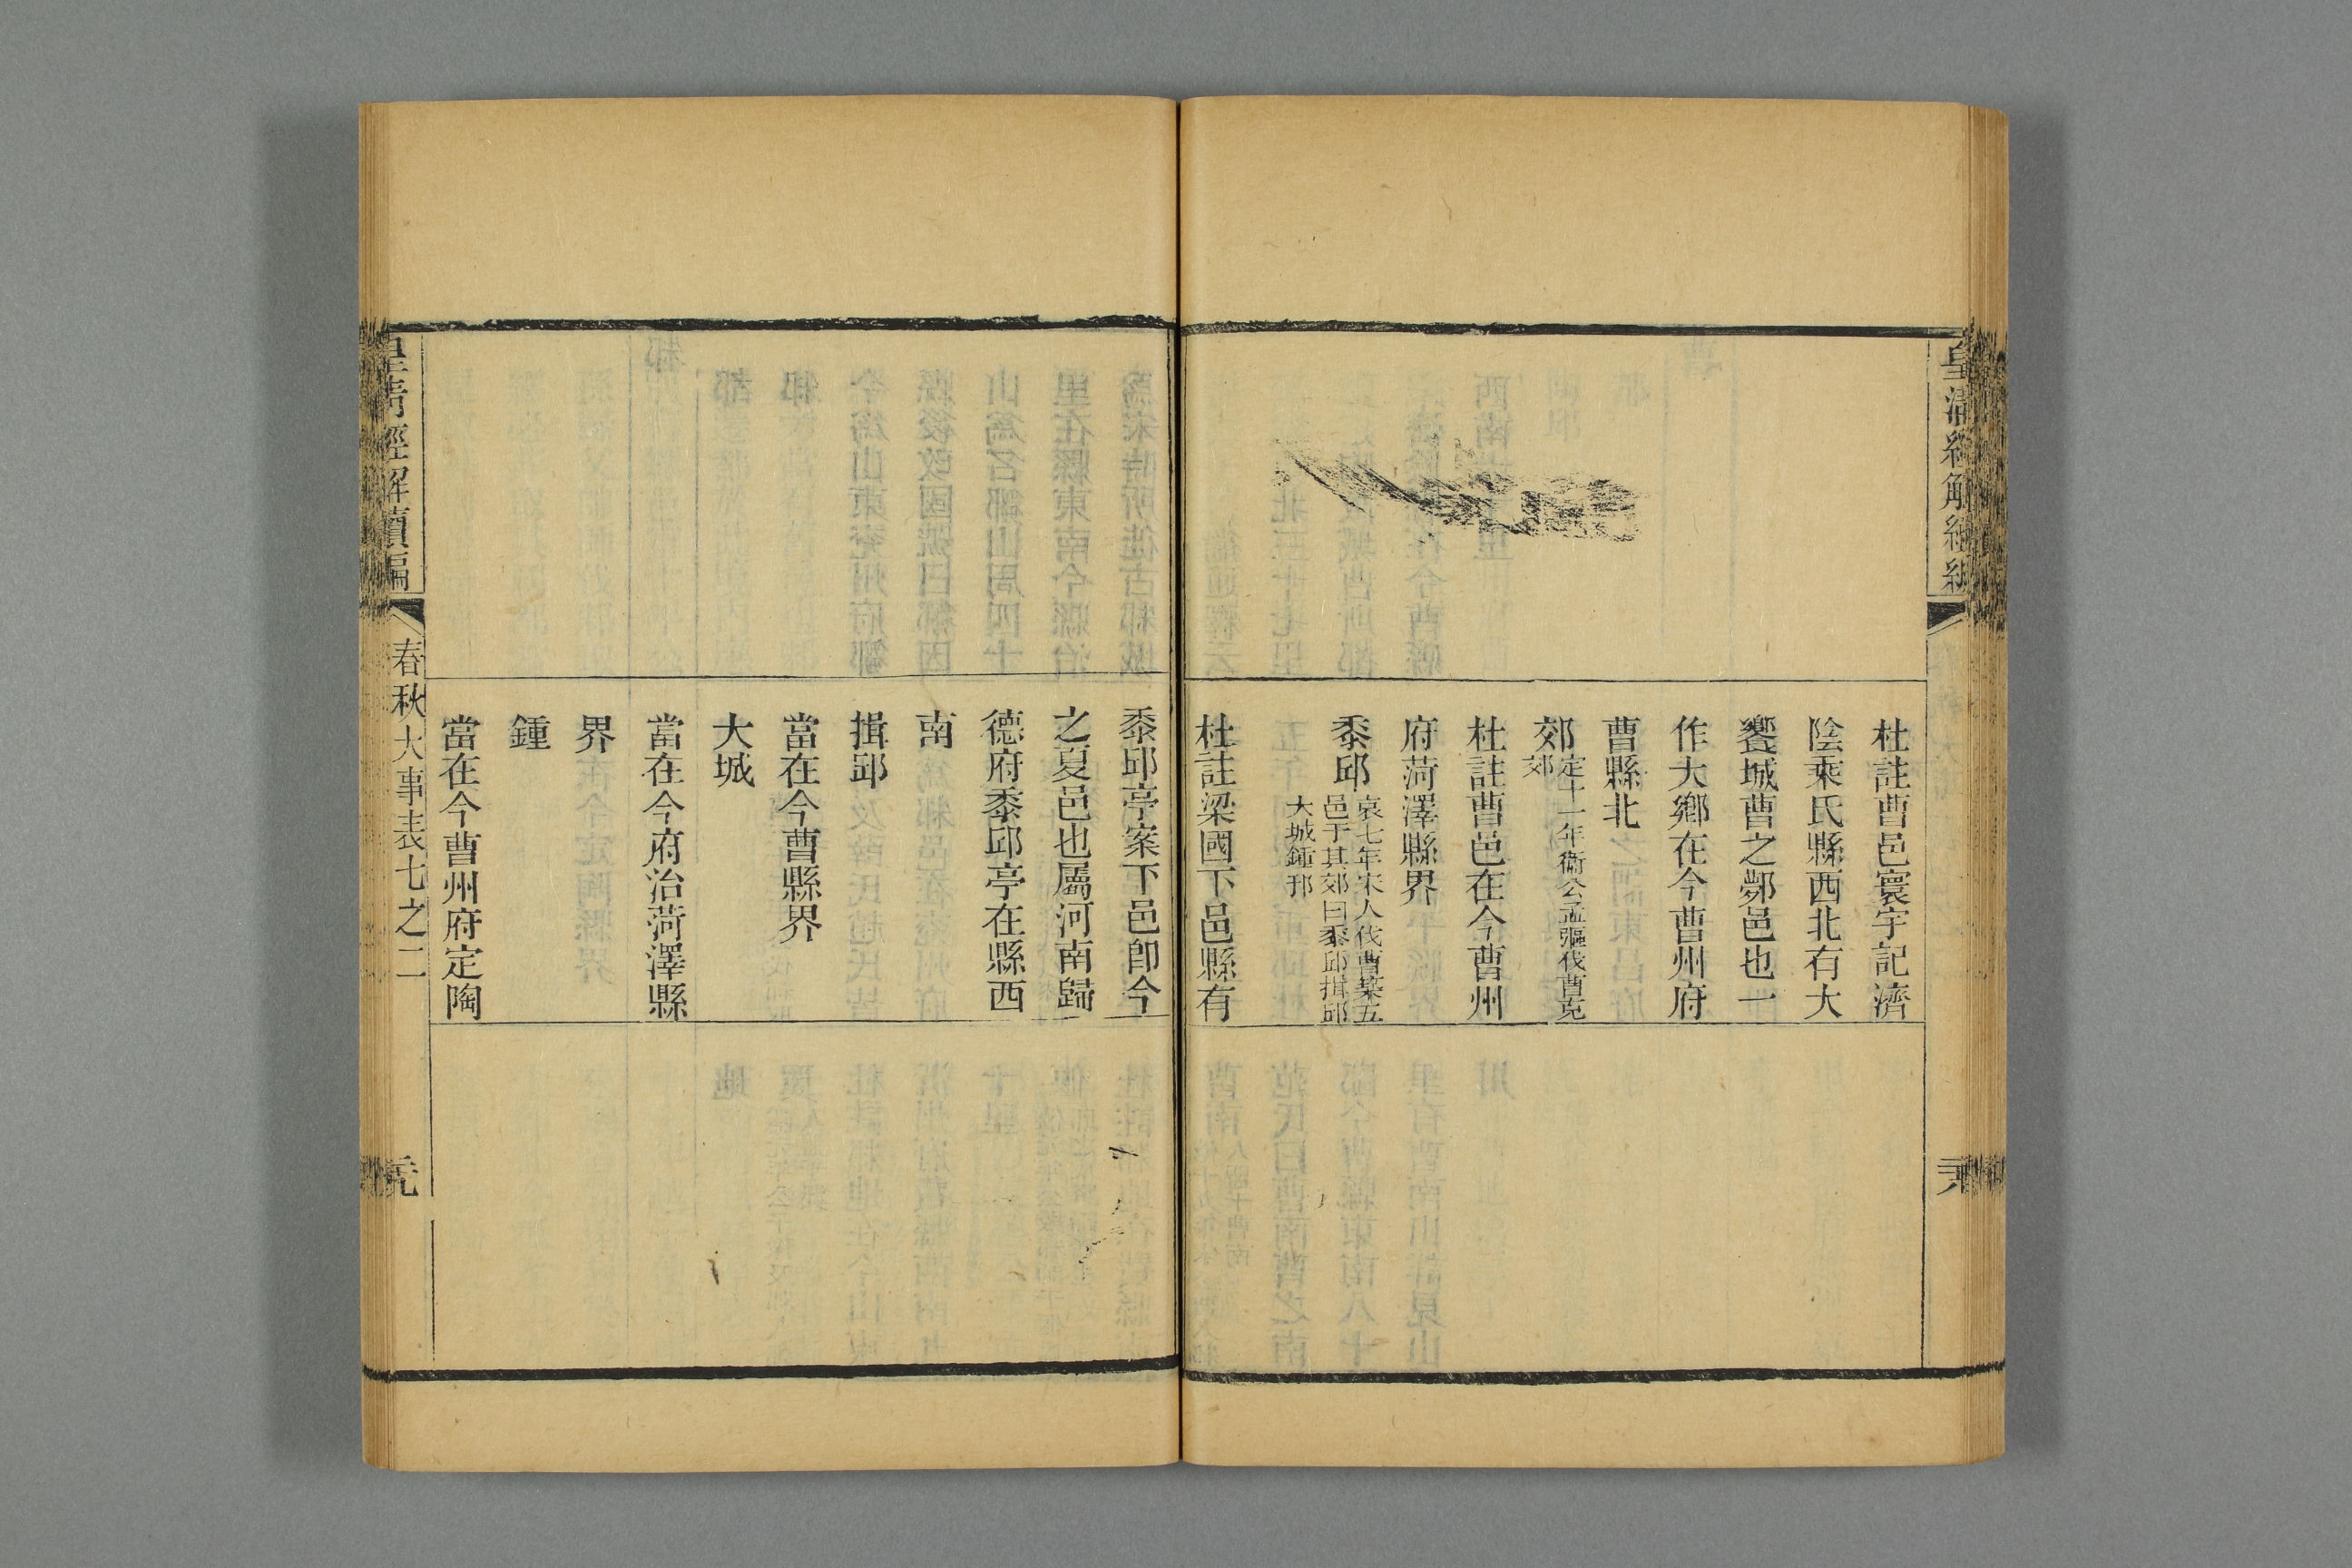 杜註曹邑寰宇記濟
陰乘氏縣西北有大
饗城曹之鄸邑也一
作大鄉在今曹州府
曹縣北
郊定十二年衞公孟彄伐曹克
郊
杜註曹邑在今曹州
府菏澤縣界
黍邱哀七年宋人伐曹築五
邑于其郊曰黍邱揖邱
大城鍾邘
杜註梁國下邑縣有
黍邱亭案下邑卽今
之夏邑也屬河南歸
德府黍邱亭在縣西
南
揖邱
當在今曹縣界
大城
當在今府治菏澤縣
界
鍾
當在今曹州府定陶
皇清經解續編
春秋大事表七之二